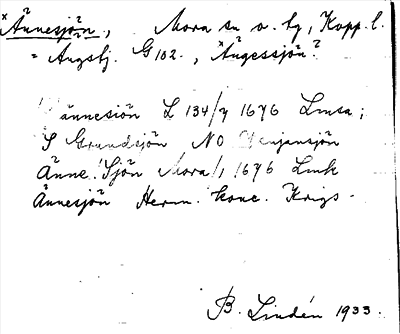 *Ännesjön, Mora sn o. tg, Kopp. l.
= Angsbj. G 102., *Ängessjön?
Ännesiön L 134/7 1676 Lmsa;
S Grundsjön NO Venjansjön
Änne Sjön Mora 1/1 1676 Lmk
Ännesjön Herm. konc. Krigs.
B. Lindén 1933.